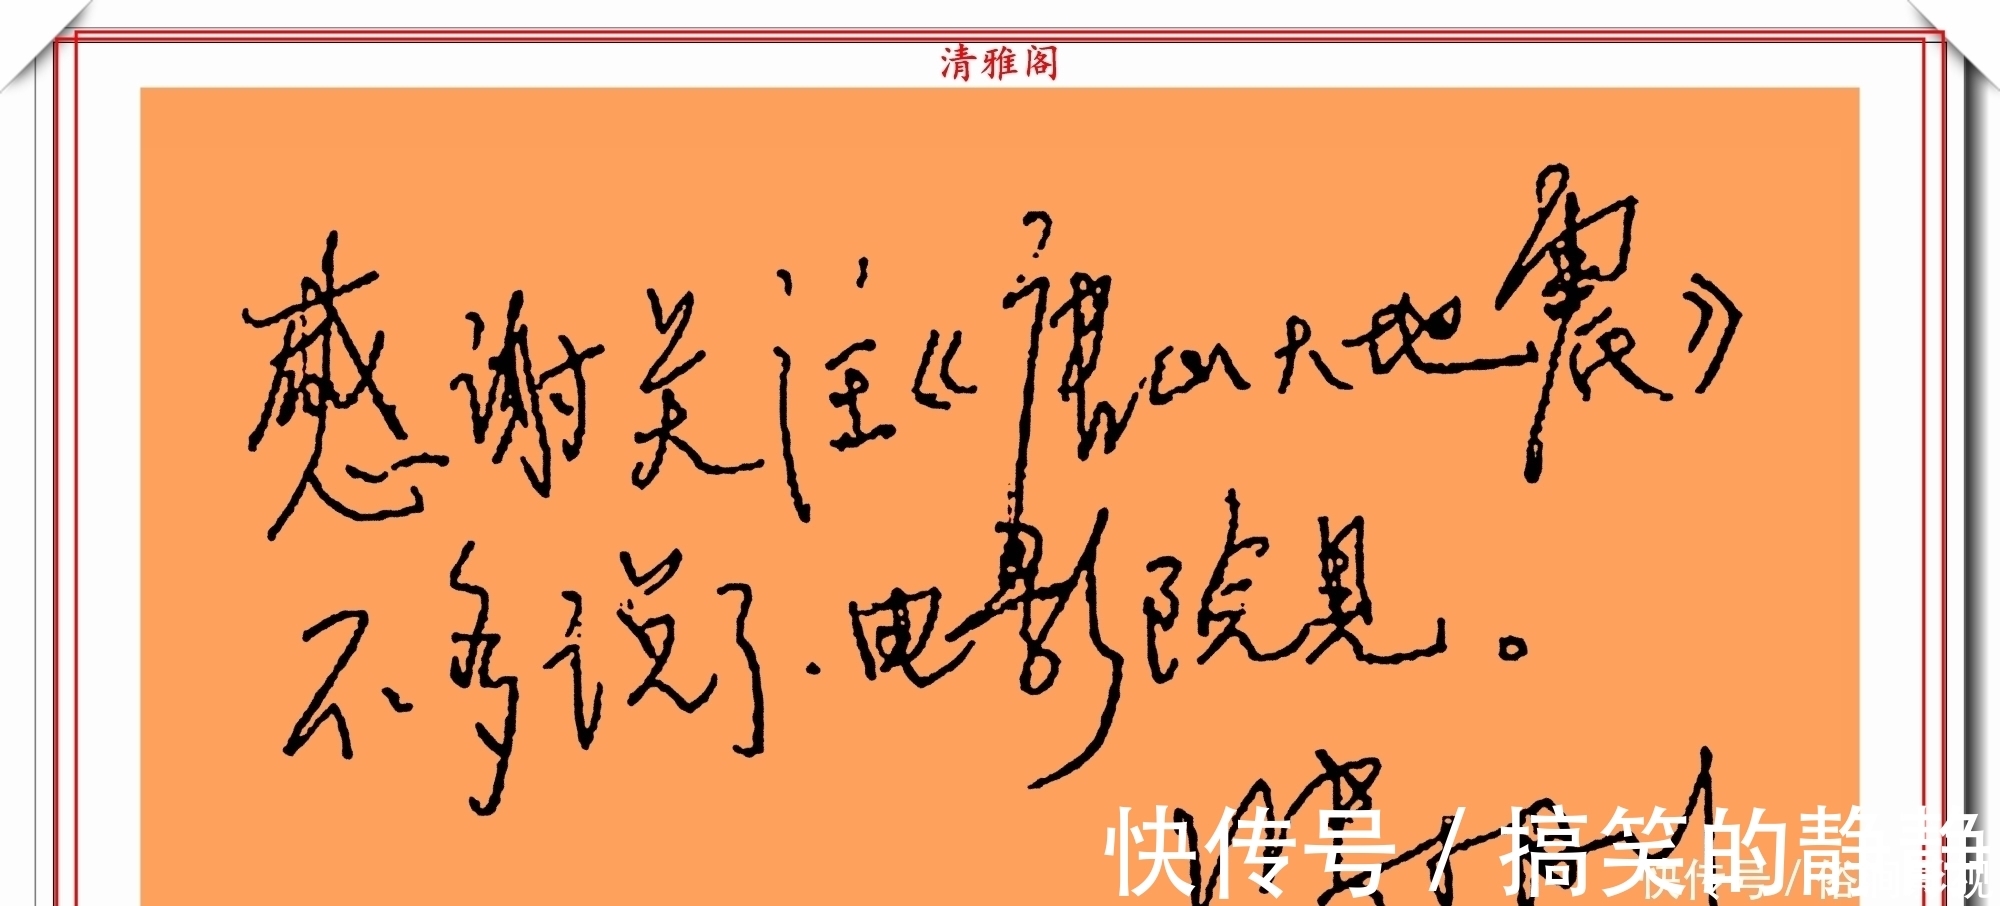 清雅阁
感谢关注《唐山大地震》
不多说了.电影院见。
快传号/搞笑的静静
快传号/